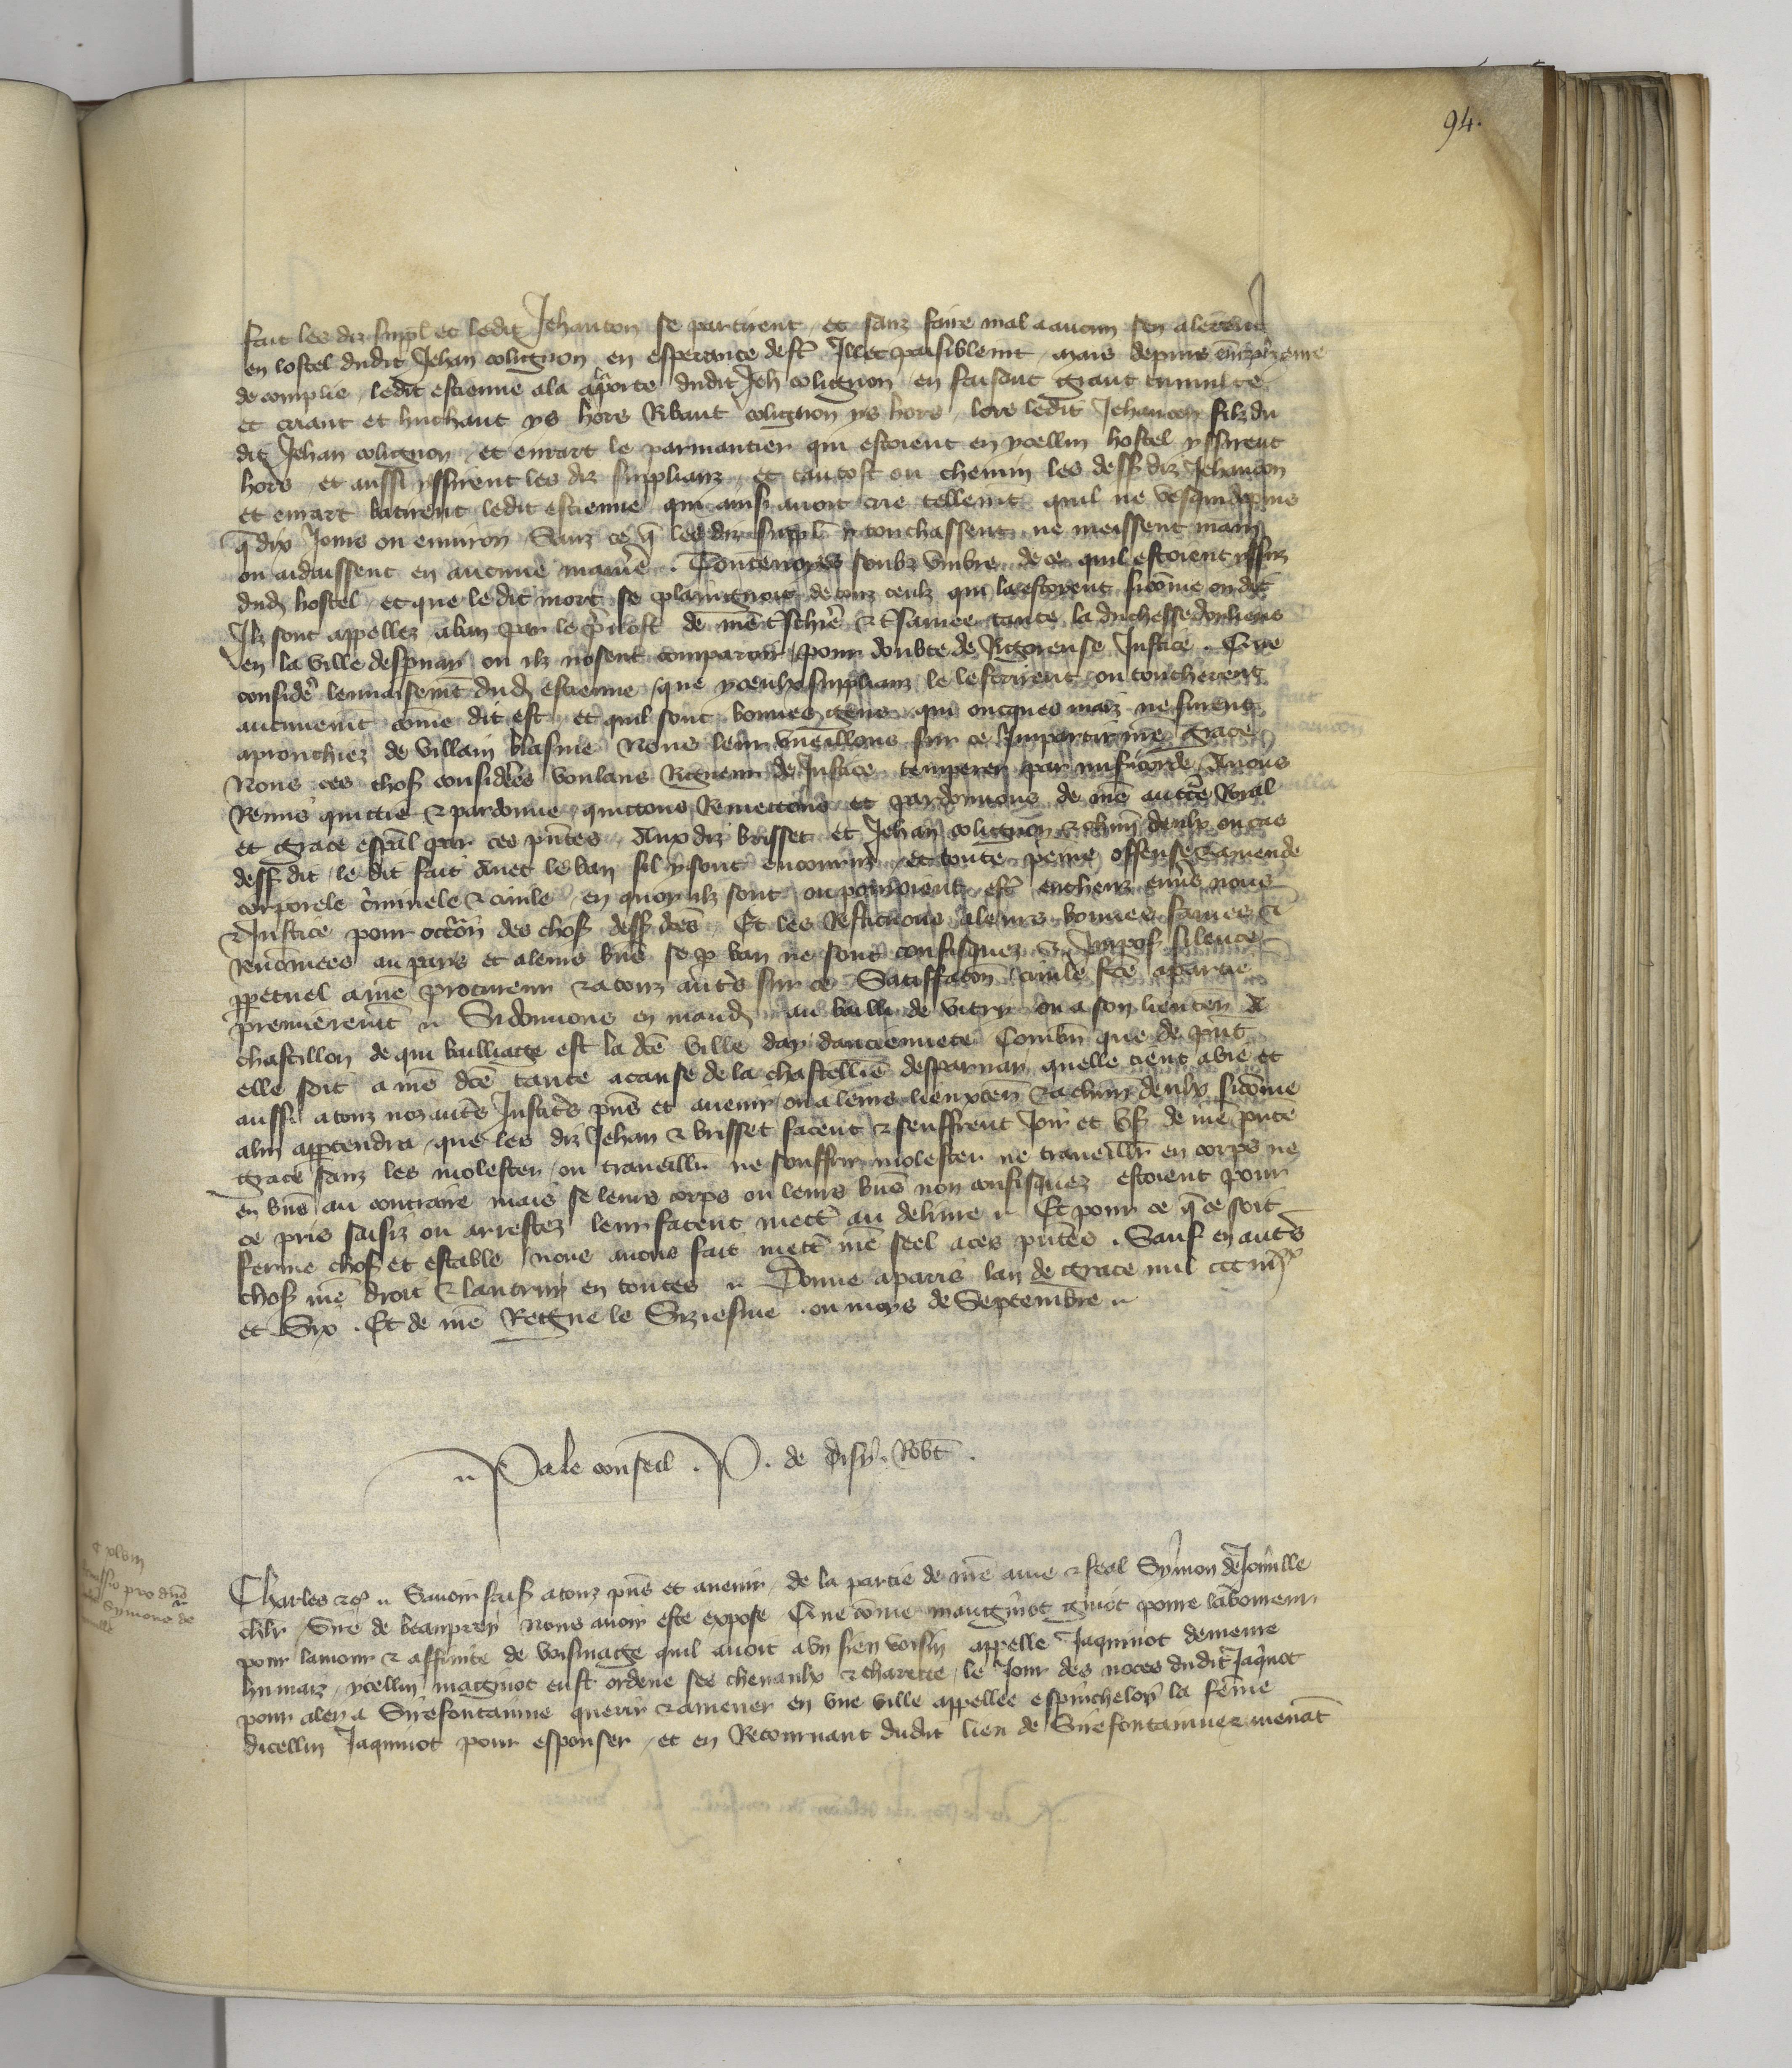 94.
fait les diz suppl et ledit Jehanton se partirent et sanz faire mal a aucun sen alerent
en lostel dudit Jehan colignon en esperance destr Illec paisiblemt mais depuis
de complie ledit estienne ala a la porte dudit Jeh colignon en faisant grant tumulte
et criant et huchant ys hors Ribaut colignon ys hors lors ledit Jehanton filz du
dit Jehan colignon et enrart le parmantier qui estoient en ycellui hostel yssirent
hors et aussi yssirent les diz supplianz et tantost ou chemin les dess diz Jehanton
et enrart batirent ledit estienne qui ainsi avoit crie tellemt quil ne vesqui depuis
q dix Jours ou environ Sanz ce q les diz suppl y touchassent ne meissent main
ou aidaissent en aucune maniere . Toutevoyes soubz umbre de ce quil estoient yssuz
dud hostel et que le dit mort se plaingnoit de touz ceulx qui la estoient sicome on dit
Ilz sont appellez a ban par le prevost de nre treschiere & tsamee tante la duchesse dorliens
en la ville despnay ou ilz nosent comparoir pour doubte de Rigoreuse Justice . Que
consider lennaisemt dud estienne que yceulx supplianz le lestirent ou toucherent
aucunemt come dit est et quil sont bonnes gens qui oncques maiz ne furent
aprouchiez de villain blasme Nous leur vueillons sur ce Impartir nre grace
Nous ces chos considers voulans Rigueur de Justice temperer par misicorde Avons
Remis quittie & pardonne quittons Remettons et pardonnons de nre auctte Roial
et grace espal par ces pntes Aux diz brisset et Jehan colignon & chun deulx ou cas
dess dit le dit fait avec le ban sil y sont encouruz et toute peine offense & amende
corporele criminele & civile en quoy ilz sont ou pourroient estr encheuz envs nous
& Justice pour occon des chos dess dces Et les Restituons a leurs bonnes fames &
Renomees au pais et a leurs bns se p ban ne sont confisquez & Impos silence
ppetuel a nre procureur & a touz autrs sur ce Satiffacon civile fce a partie
premieremt Si donnons en mand au bailli de vitry ou a son lieuten a
chastillon de qui bailliage est la dce ville day danciennete Combn que de pnt
elle soit a nre dce tante a cause de la chastellie desparnay quelle tient a vie et
aussi a touz noz autrs Justicrs pns et avenir ou a leurs lieuxten & a chun deulx sicome
alui appartendra que les diz Jehan & brisset facent & seuffrent Joir et us de nre pnte
grace sanz les molester ou traveillr ne souffrir molester ne traveillr en corps ne
en bns au contraire mais se leurs corps ou leurs bns non confisquez estoient pour
ce pris saisiz ou arrestez leur facent mettr au delivre Et pour ce q ce soit
ferme chos et estable nous avons fait mettr nre seel a ces pntes . Sauf en autrs
chos nre droit & lautruy en toutes Donne a paris lan de grace mil ccc iiijxx
et Six . Et de nre Regne le Siziesme ou moys de Septembre
Pa le conseil . P . de disy . Robt .
Charles &c Savoir fais a touz pns et avenir de la partie de nre ame & feal Symon de Joinville
chlr Sire de beaupre Nous avoir este expose Que come mauginot povre laboureur
pour lamour & affinite de voisinage quil avoit a un sien voisin appelle Jaquinot
ycellui maginot eust ordene ses chevaulx & charette le Jour des noces dudit Jaqinot
pour aler a Sirefontainne querir & amener en une ville appellee espincheloy la feme
dicellui Jaquinot pour espouser et en Retournant dudit lieu de Sirefontainne & menat
remissio pro dno
Symone de